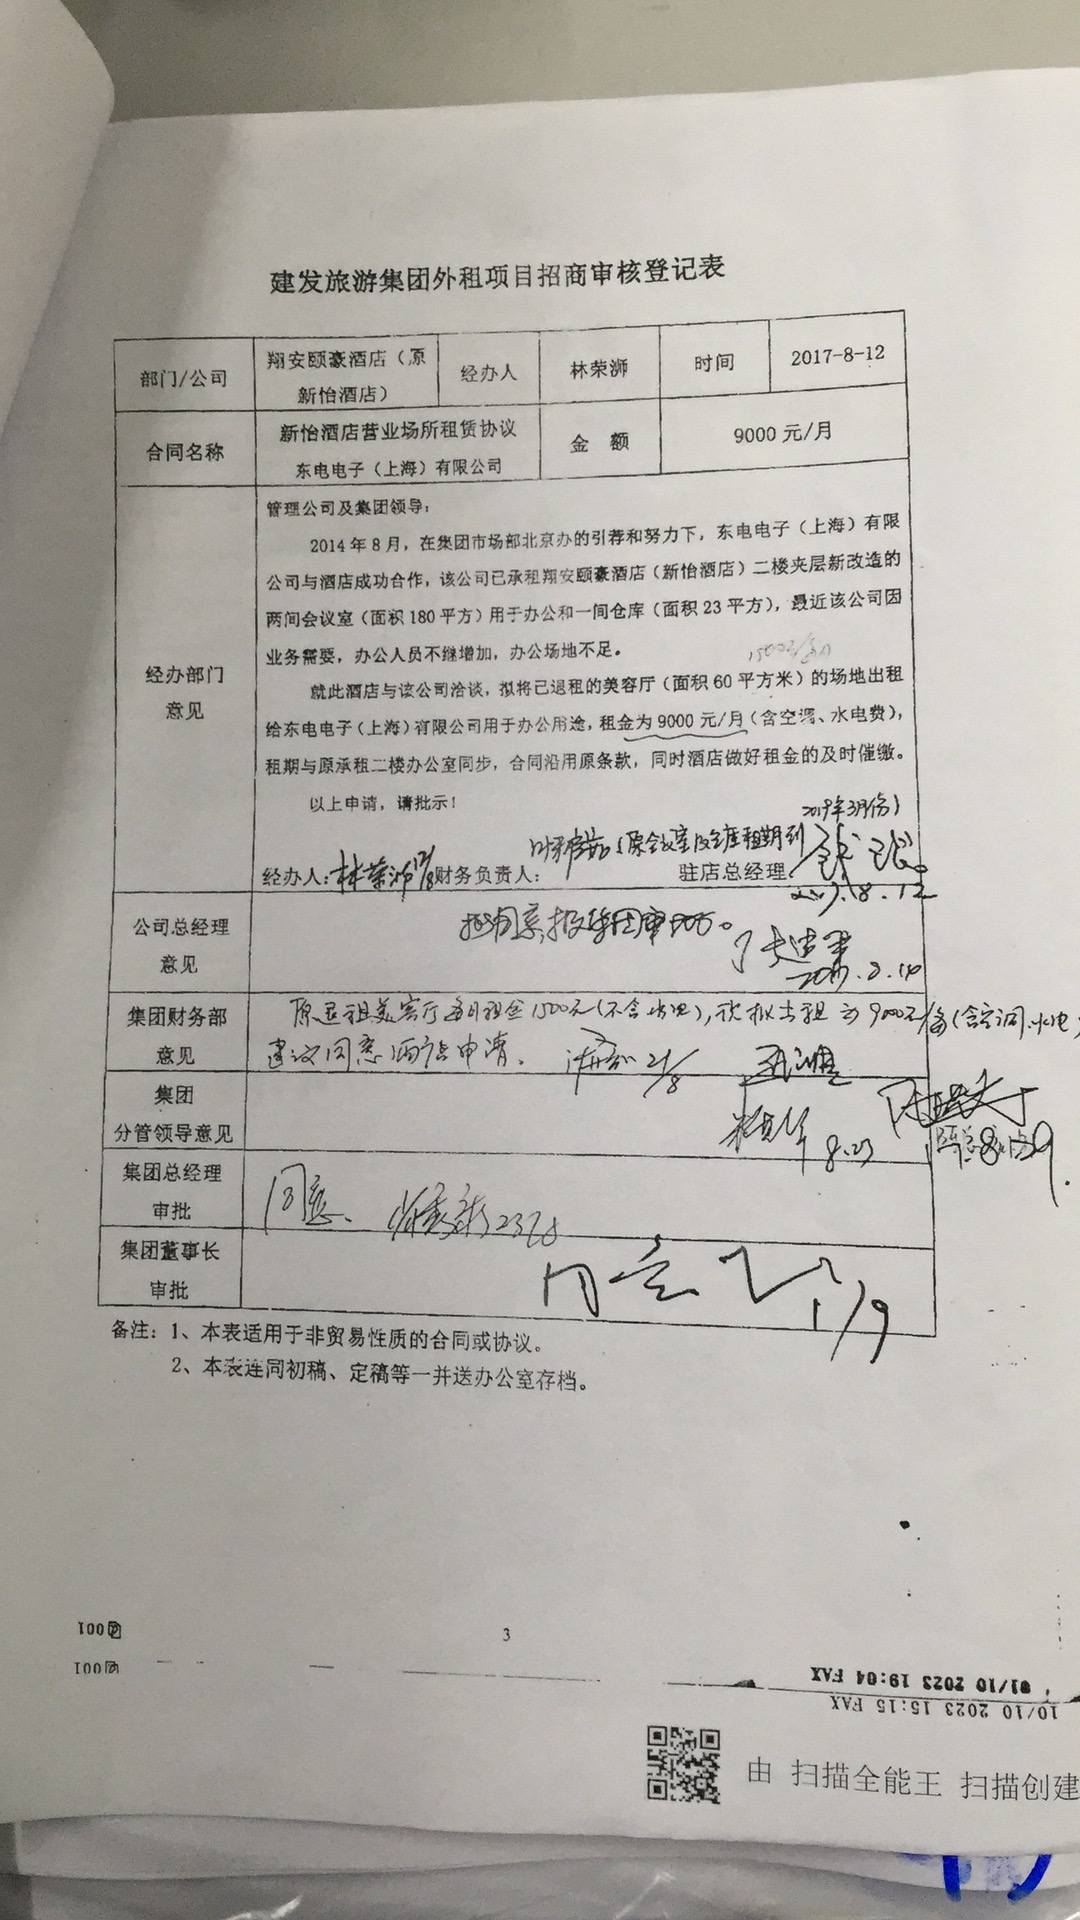 建发旅游集团外租项目招商审核登记表
部门/公司 翔安颐豪酒店（原新怡酒店） 经办人 林荣浉 时间 2017-8-12
合同名称 新怡酒店营业场所租赁协议 金 额 9000 元/月
东电电子（上海）有限公司
经办部门意见
管理公司及集团领导：
2014 年 8 月，在集团市场部北京办的引荐和努力下，东电电子（上海）有限
公司与酒店成功合作，该公司已承租翔安颐豪酒店（新怡酒店）二楼夹层新改造的
两间会议室（面积 180 平方）用于办公和一间仓库（面积 23 平方），最近该公司因
业务需要，办公人员不继增加，办公场地不足。
就此酒店与该公司洽谈，拟将已退租的美容厅（面积 60 平方米）的场地出租
给东电电子（上海）有限公司用于办公用途，租金为 9000 元/月（含空调、水电费），
租期与原承租二楼办公室同步，合同沿用原条款，同时酒店做好租金的及时催缴。
以上申请，请批示！
2019年3月份）
经办人：林荣浉 财务负责人： 驻店总经理
2017.8.12
公司总经理意见
2017.8.14
集团财务部意见 原退租美容厅每月租金1500元（不含水电），现拟出租为9000元/每（含空调、水电
建议同意酒店申请、 21/8
集团分管领导意见 8.23
集团总经理审批 同意、
集团董事长审批 同意 1/9
备注：1、本表适用于非贸易性质的合同或协议。
2、本表连同初稿、定稿等一并送办公室存档。
3
001
001
01/10 2023 19:04 FAX
10/10 2023 15:15 FAX
由 扫描全能王 扫描创建